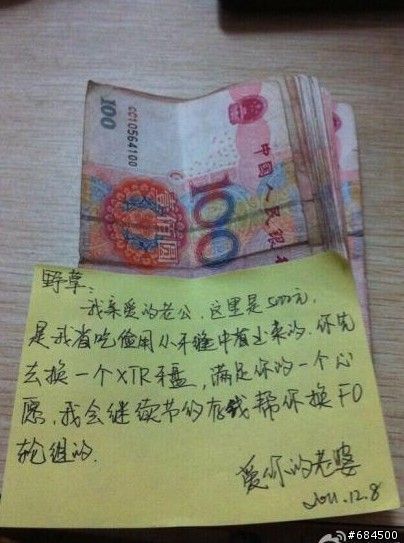 100
CC10564100
中国人民银
壹佰圆
100
野草:
我亲爱的老公,这里是5000元,
是我省吃俭用从牙缝中省出来的.你先
去换一个XTR牙盘,满足你的一个心
愿,我会继续节约存钱帮你换FO
轮组的.
爱你的老婆
2011.12.8
#684500